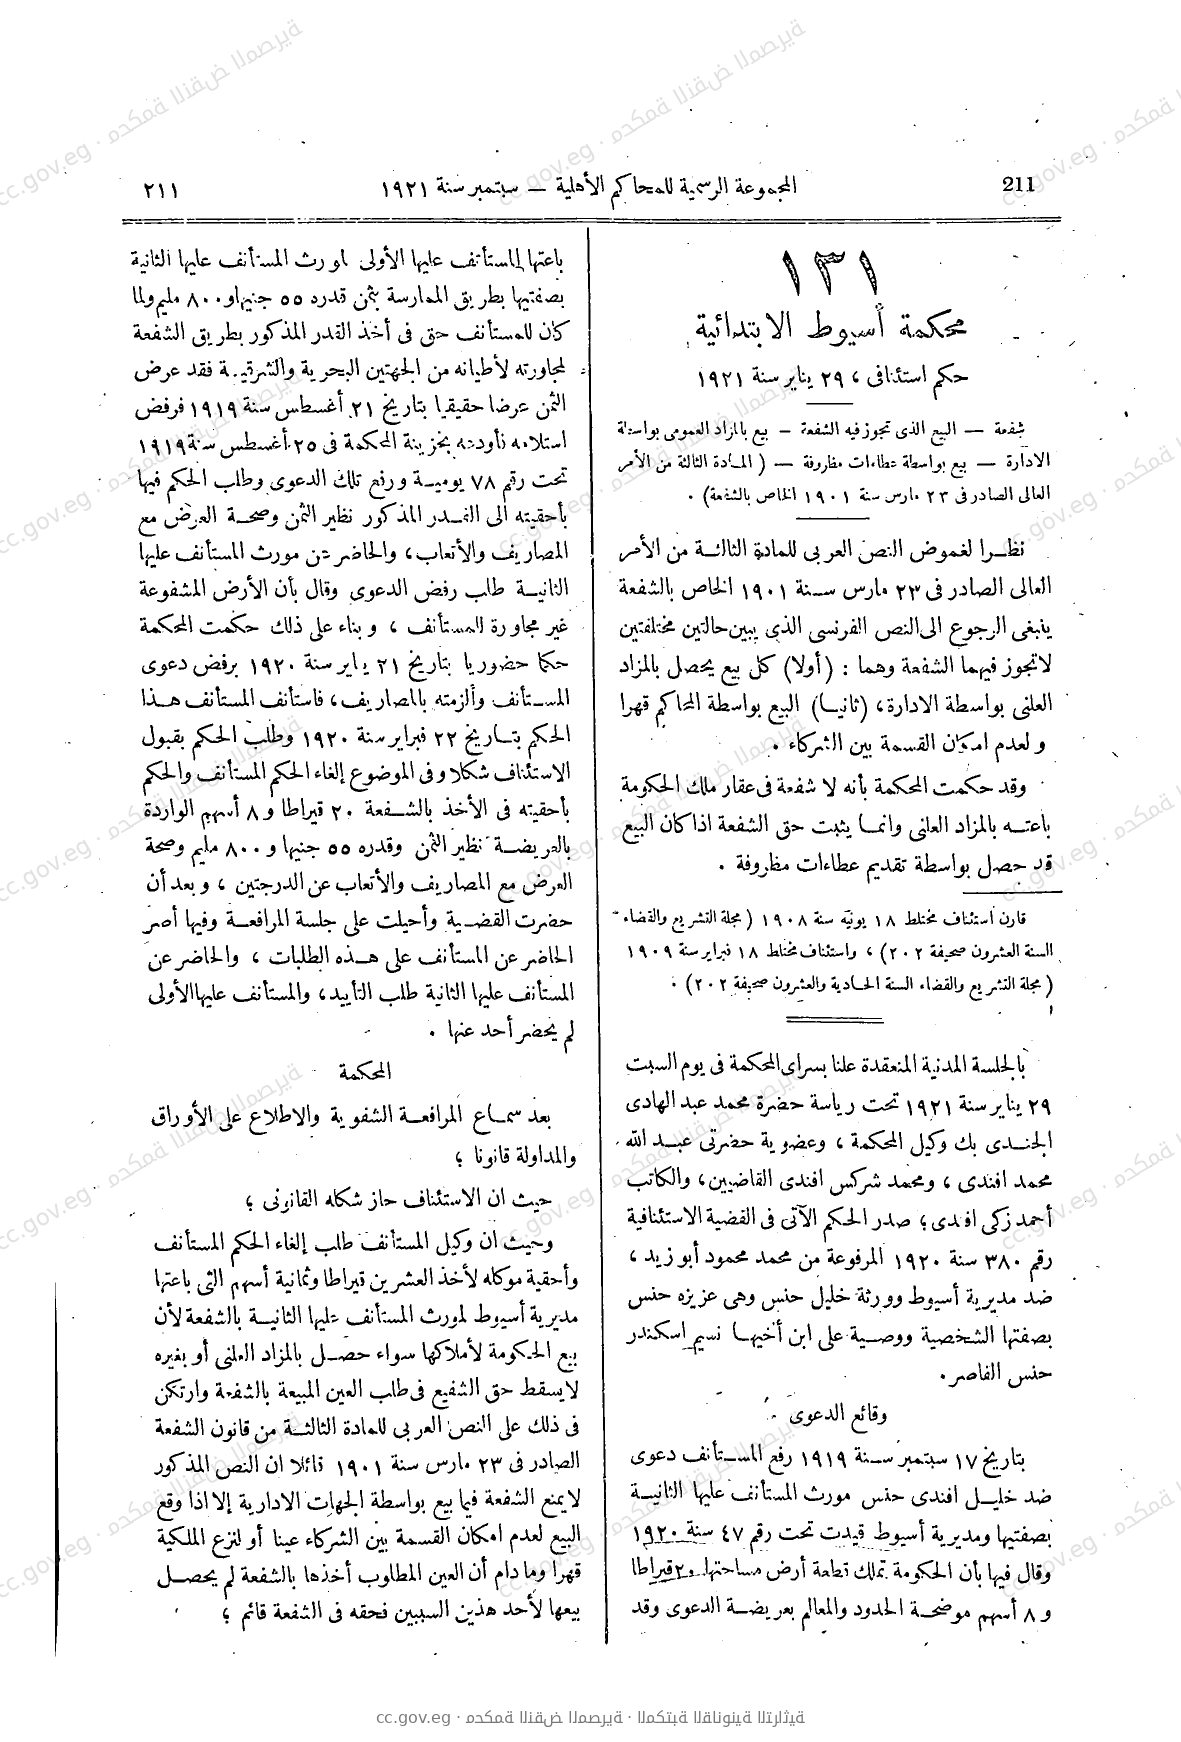 211
المجموعة الرسمية للمحاكم الأهلية — سبتمبر سنة ١٩٢١
٢١١
١٣١
محكمة أسيوط الابتدائية
حكم استئنافى ، ٢٩ يناير سنة ١٩٢١
شفعة — البيع الذى تجوز فيه الشفعة — بيع بالمزاد العمومى بواسطة
الادارة — بيع بواسطة عطاءات مظروفة — ( المادة الثالثة من الأمر
العالى الصادر فى ٢٣ مارس سنة ١٩٠١ الخاص بالشفعة) .
نظرا لغموض النص العربى للمادة الثالثة من الأمر
العالى الصادر فى ٢٣ مارس سنة ١٩٠١ الخاص بالشفعة
ينبغى الرجوع الى النص الفرنسى الذى يبين حالتين مختلفتين
لا تجوز فيهما الشفعة وهما : (أولا) كل بيع يحصل بالمزاد
العلنى بواسطة الادارة، (ثانيا) البيع بواسطة المحاكم قهرا
ولعدم امكان القسمة بين الشركاء .
وقد حكمت المحكمة بأنه لا شفعة فى عقار ملك الحكومة
باعته بالمزاد العلنى وانما يثبت حق الشفعة اذا كان البيع
قد حصل بواسطة تقديم عطاءات مظروفة .
قارن استئناف مختلط ١٨ يونيه سنة ١٩٠٨ ( مجلة التشريع والقضاء
السنة العشرون صحيفة ٢٠٢) ، واستئناف مختلط ١٨ فبراير سنة ١٩٠٩
( مجلة التشريع والقضاء السنة الحادية والعشرون صحيفة ٢٠٢) .
بالجلسة المدنية المنعقدة علنا بسراى المحكمة فى يوم السبت
٢٩ يناير سنة ١٩٢١ تحت رياسة حضرة محمد عبد الهادى
الجندى بك وكيل المحكمة ، وعضوية حضرتى عبد الله
محمد افندى ، ومحمد شركس افندى القاضيين، والكاتب
أحمد زكى افندى؛ صدر الحكم الآتى فى القضية الاستئنافية
رقم ٣٨٠ سنة ١٩٢٠ المرفوعة من محمد محمود أبو زيد ،
ضد مديرية أسيوط وورثة خليل حنس وهى عزيزه حنس
بصفتها الشخصية ووصية على ابن أخيها نسيم اسكندر
حنس القاصر.
وقائع الدعوى
بتاريخ ١٧ سبتمبر سنة ١٩١٩ رفع المستأنف دعوى
ضد خليل افندى حنس مورث المستأنف عليها الثانية
بصفتيها ومديرية أسيوط قيدت تحت رقم ٤٧ سنة ١٩٢٠
وقال فيها بأن الحكومة تملك قطعة أرض مساحتها ٢٠ قيراطا
و ٨ أسهم موضحة الحدود والمعالم بعريضة الدعوى وقد
باعتها المستأنف عليها الأولى لمورث المستأنف عليها الثانية
بصفتيها بطريق الممارسة بثمن قدره ٥٥ جنيها و ٨٠٠ مليم ولما
كان للمستأنف حق فى أخذ القدر المذكور بطريق الشفعة
لمجاورته لأطيانه من الجهتين البحرية والشرقية فقد عرض
الثمن عرضا حقيقيا بتاريخ ٢١ أغسطس سنة ١٩١٩ فرفض
استلامه فأودعه بخزينة المحكمة فى ٢٥ أغسطس سنة ١٩١٩
تحت رقم ٧٨ يومية ورفع تلك الدعوى وطلب الحكم فيها
بأحقيته الى القدر المذكور نظير الثمن وصحة العرض مع
المصاريف والأتعاب، والحاضر عن مورث المستأنف عليها
الثانية طلب رفض الدعوى وقال بأن الأرض المشفوعة
غير مجاورة للمستأنف ، وبناء على ذلك حكمت المحكمة
حكما حضوريا بتاريخ ٢١ يناير سنة ١٩٢٠ برفض دعوى
المستأنف وألزمته بالمصاريف، فاستأنف المستأنف هذا
الحكم بتاريخ ٢٢ فبراير سنة ١٩٢٠ وطلب الحكم بقبول
الاستئناف شكلا وفى الموضوع إلغاء الحكم المستأنف والحكم
بأحقيته فى الأخذ بالشفعة ٢٠ قيراطا و ٨ أسهم الواردة
بالعريضة نظير الثمن وقدره ٥٥ جنيها و ٨٠٠ مليم وصحة
العرض مع المصاريف والأتعاب عن الدرجتين ، وبعد أن
حضرت القضية وأحيلت على جلسة المرافعة وفيها أصر
الحاضر عن المستأنف على هذه الطلبات ، والحاضر عن
المستأنف عليها الثانية طلب التأييد، والمستأنف عليها الأولى
لم يحضر أحد عنها .
المحكمة
بعد سماع المرافعة الشفوية والاطلاع على الأوراق
والمداولة قانونا ؛
حيث ان الاستئناف حاز شكله القانونى ؛
وحيث ان وكيل المستأنف طلب إلغاء الحكم المستأنف
وأحقية موكله لأخذ العشرين قيراطا وثمانية أسهم التى باعتها
مديرية أسيوط لمورث المستأنف عليها الثانية بالشفعة لأن
بيع الحكومة لأملاكها سواء حصل بالمزاد العلنى أو بغيره
لا يسقط حق الشفيع فى طلب العين المبيعة بالشفعة وارتكن
فى ذلك على النص العربى للمادة الثالثة من قانون الشفعة
الصادر فى ٢٣ مارس سنة ١٩٠١ قائلا ان النص المذكور
لا يمنع الشفعة فيما بيع بواسطة الجهات الادارية إلا اذا وقع
البيع لعدم امكان القسمة بين الشركاء عينا أو لنزع الملكية
قهرا وما دام أن العين المطلوب أخذها بالشفعة لم يحصل
بيعها لأحد هذين السببين فحقه فى الشفعة قائم ؛
cc.gov.eg · محكمة النقض المصرية · المكتبة القانونية التراثية